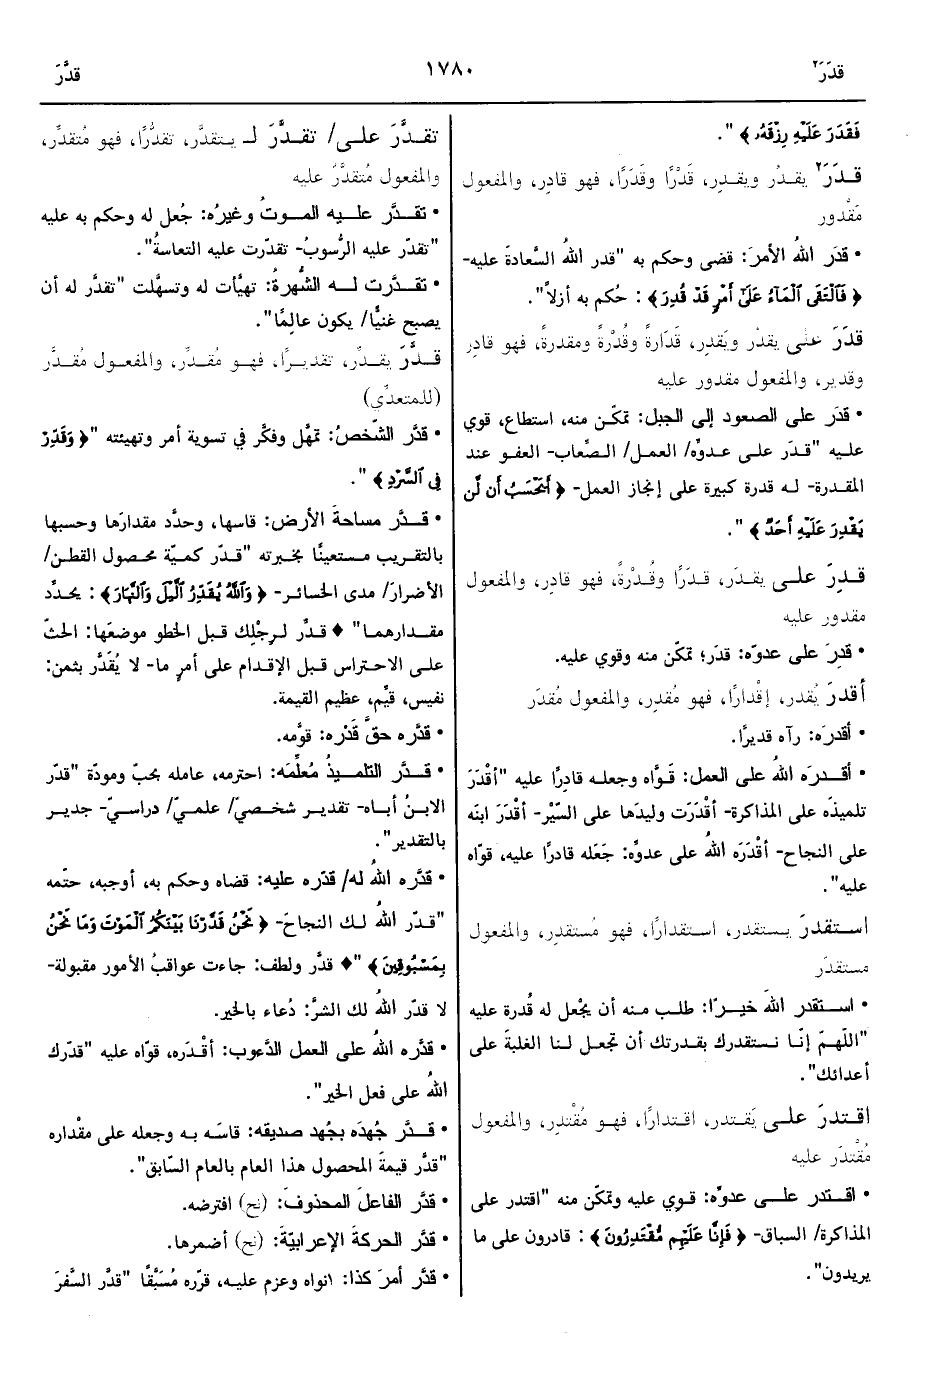 قدَرَ٢
١٧٨٠
قدَّرَ
فَقَدَرَ عَلَيْهِ رِزْقَهُۥ ﴾ ".
قدَرَ٢ يقدُر ويقدِر، قَدْرًا وقَدَرًا، فهو قادِر، والمفعول
مَقْدور
• قدَر اللهُ الأمرَ: قضى وحكم به "قدر اللهُ السَّعادةَ عليه-
﴿ فَٱلْتَقَى ٱلْمَآءُ عَلَىٰٓ أَمْرٍ قَدْ قُدِرَ ﴾ : حُكم به أزلاً".
قدَرَ على يقدُر ويَقدِر، قَدَارةً وقُدْرةً ومقدرةً، فهو قادِر
وقدير، والمفعول مقدور عليه
• قدَر على الصعود إلى الجبل: تمكّن منه، استطاع، قوي
عليه "قدَر على عدوِّه/ العمل/ الصِّعاب- العفو عند
المقدرة- له قدرة كبيرة على إنجاز العمل- ﴿ أَيَحْسَبُ أَن لَّن
يَقْدِرَ عَلَيْهِ أَحَدٌ ﴾ ".
قدِرَ على يقدَر، قدَرًا وقُدْرةً، فهو قادِر، والمفعول
مقدور عليه
• قدِرَ على عدوّه: قدَر؛ تمكّن منه وقوي عليه.
أقدرَ يُقدر، إقْدارًا، فهو مُقدِر، والمفعول مُقدَر
• أقدرَه: رآه قديرًا.
• أقدرَه اللهُ على العمل: قوَّاه وجعله قادرًا عليه "أقْدَرَ
تلميذَه على المذاكرة- أقدَرَت وليدَها على السَّيْر- أقْدَرَ ابنَه
على النجاح- أقْدَرَه اللهُ على عدوِّه: جَعَله قادرًا عليه، قوّاه
عليه".
استقدرَ يستقدر، استقدارًا، فهو مُستقدِر، والمفعول
مستقدَر
• استقدر اللهَ خيرًا: طلب منه أن يجْعل له قُدرة عليه
"اللّهمّ إنّا نستقدرك بقدرتك أن تجعل لنا الغلبةَ على
أعدائك".
اقتدرَ على يَقتدر، اقتدارًا، فهو مُقْتدِر، والمفعول
مُقْتدَر عليه
• اقتدر على عدوِّه: قوي عليه وتمكّن منه "اقتدر على
المذاكرة/ السباق- ﴿ فَإِنَّا عَلَيْهِم مُّقْتَدِرُونَ ﴾ : قادرون على ما
يريدون".
تقدَّرَ على/ تقدَّرَ لـ يتقدَّر، تقدُّرًا، فهو مُتقدِّر،
والمفعول مُتقدَّرٌ عليه
• تقدَّر عليه الموتُ وغيرُه: جُعل له وحكم به عليه
"تقدّر عليه الرُّسوبُ- تقدّرت عليه التعاسةُ".
• تقدَّرت له الشُّهرةُ: تهيَّأت له وتسهَّلت "تقدَّر له أن
يصبح غنيًّا/ يكون عالِمًا".
قدَّرَ يقدِّر، تقديرًا، فهو مُقدِّر، والمفعول مُقدَّر
(للمتعدِّي)
• قدَّر الشَّخصُ: تمهَّل وفكَّر في تسوية أمر وتهيئته "﴿ وَقَدِّرْ
فِي ٱلسَّرْدِ ﴾ ".
• قدَّر مساحةَ الأرض: قاسها، وحدَّد مقدارَها وحسبها
بالتقريب مستعينًا بخبرته "قدّر كميّة محصول القطن/
الأضرارَ/ مدى الخسائر- ﴿ وَٱللَّهُ يُقَدِّرُ ٱلَّيْلَ وَٱلنَّهَارَ ﴾ : يحدِّد
مقدارهما" ♦ قدِّر لرِجْلِك قبل الخطو موضعَها: الحثّ
على الاحتراس قبل الإقدام على أمرٍ ما- لا يُقَدَّر بثمن:
نفيس، قيِّم، عظيم القيمة.
• قدَّره حقَّ قَدْره: قوَّمه.
• قدَّر التلميذُ مُعلِّمَه: احترمه، عامله بحبّ ومودّة "قدّر
الابنُ أباه- تقدير شخصيّ/ علميّ/ دراسيّ- جدير
بالتقدير".
• قدَّره اللهُ له/ قدّره عليه: قضاه وحكم به، أوجبه، حتّمه
"قدّر اللهُ لك النجاحَ- ﴿ نَحْنُ قَدَّرْنَا بَيْنَكُمُ ٱلْمَوْتَ وَمَا نَحْنُ
بِمَسْبُوقِينَ ﴾ "♦ قدَّر ولطف: جاءت عواقبُ الأمور مقبولة-
لا قدّر اللهُ لك الشرَّ: دُعاء بالخير.
• قدَّره اللهُ على العمل الدَّءوب: أقْدَره، قوّاه عليه "قدّرك
اللهُ على فعل الخير".
• قدَّر جُهدَه بجُهد صديقه: قاسَه به وجعله على مقْداره
"قدَّر قيمةَ المحصول هذا العام بالعام السّابق".
• قدَّر الفاعلَ المحذوفَ: (نح) افترضه.
• قدَّر الحركةَ الإعرابيّةَ: (نح) أضمرها.
• قدَّر أمرَ كذا: انواه وعزم عليه، قرّره مُسَبَّقًا "قدَّر السَّفرَ